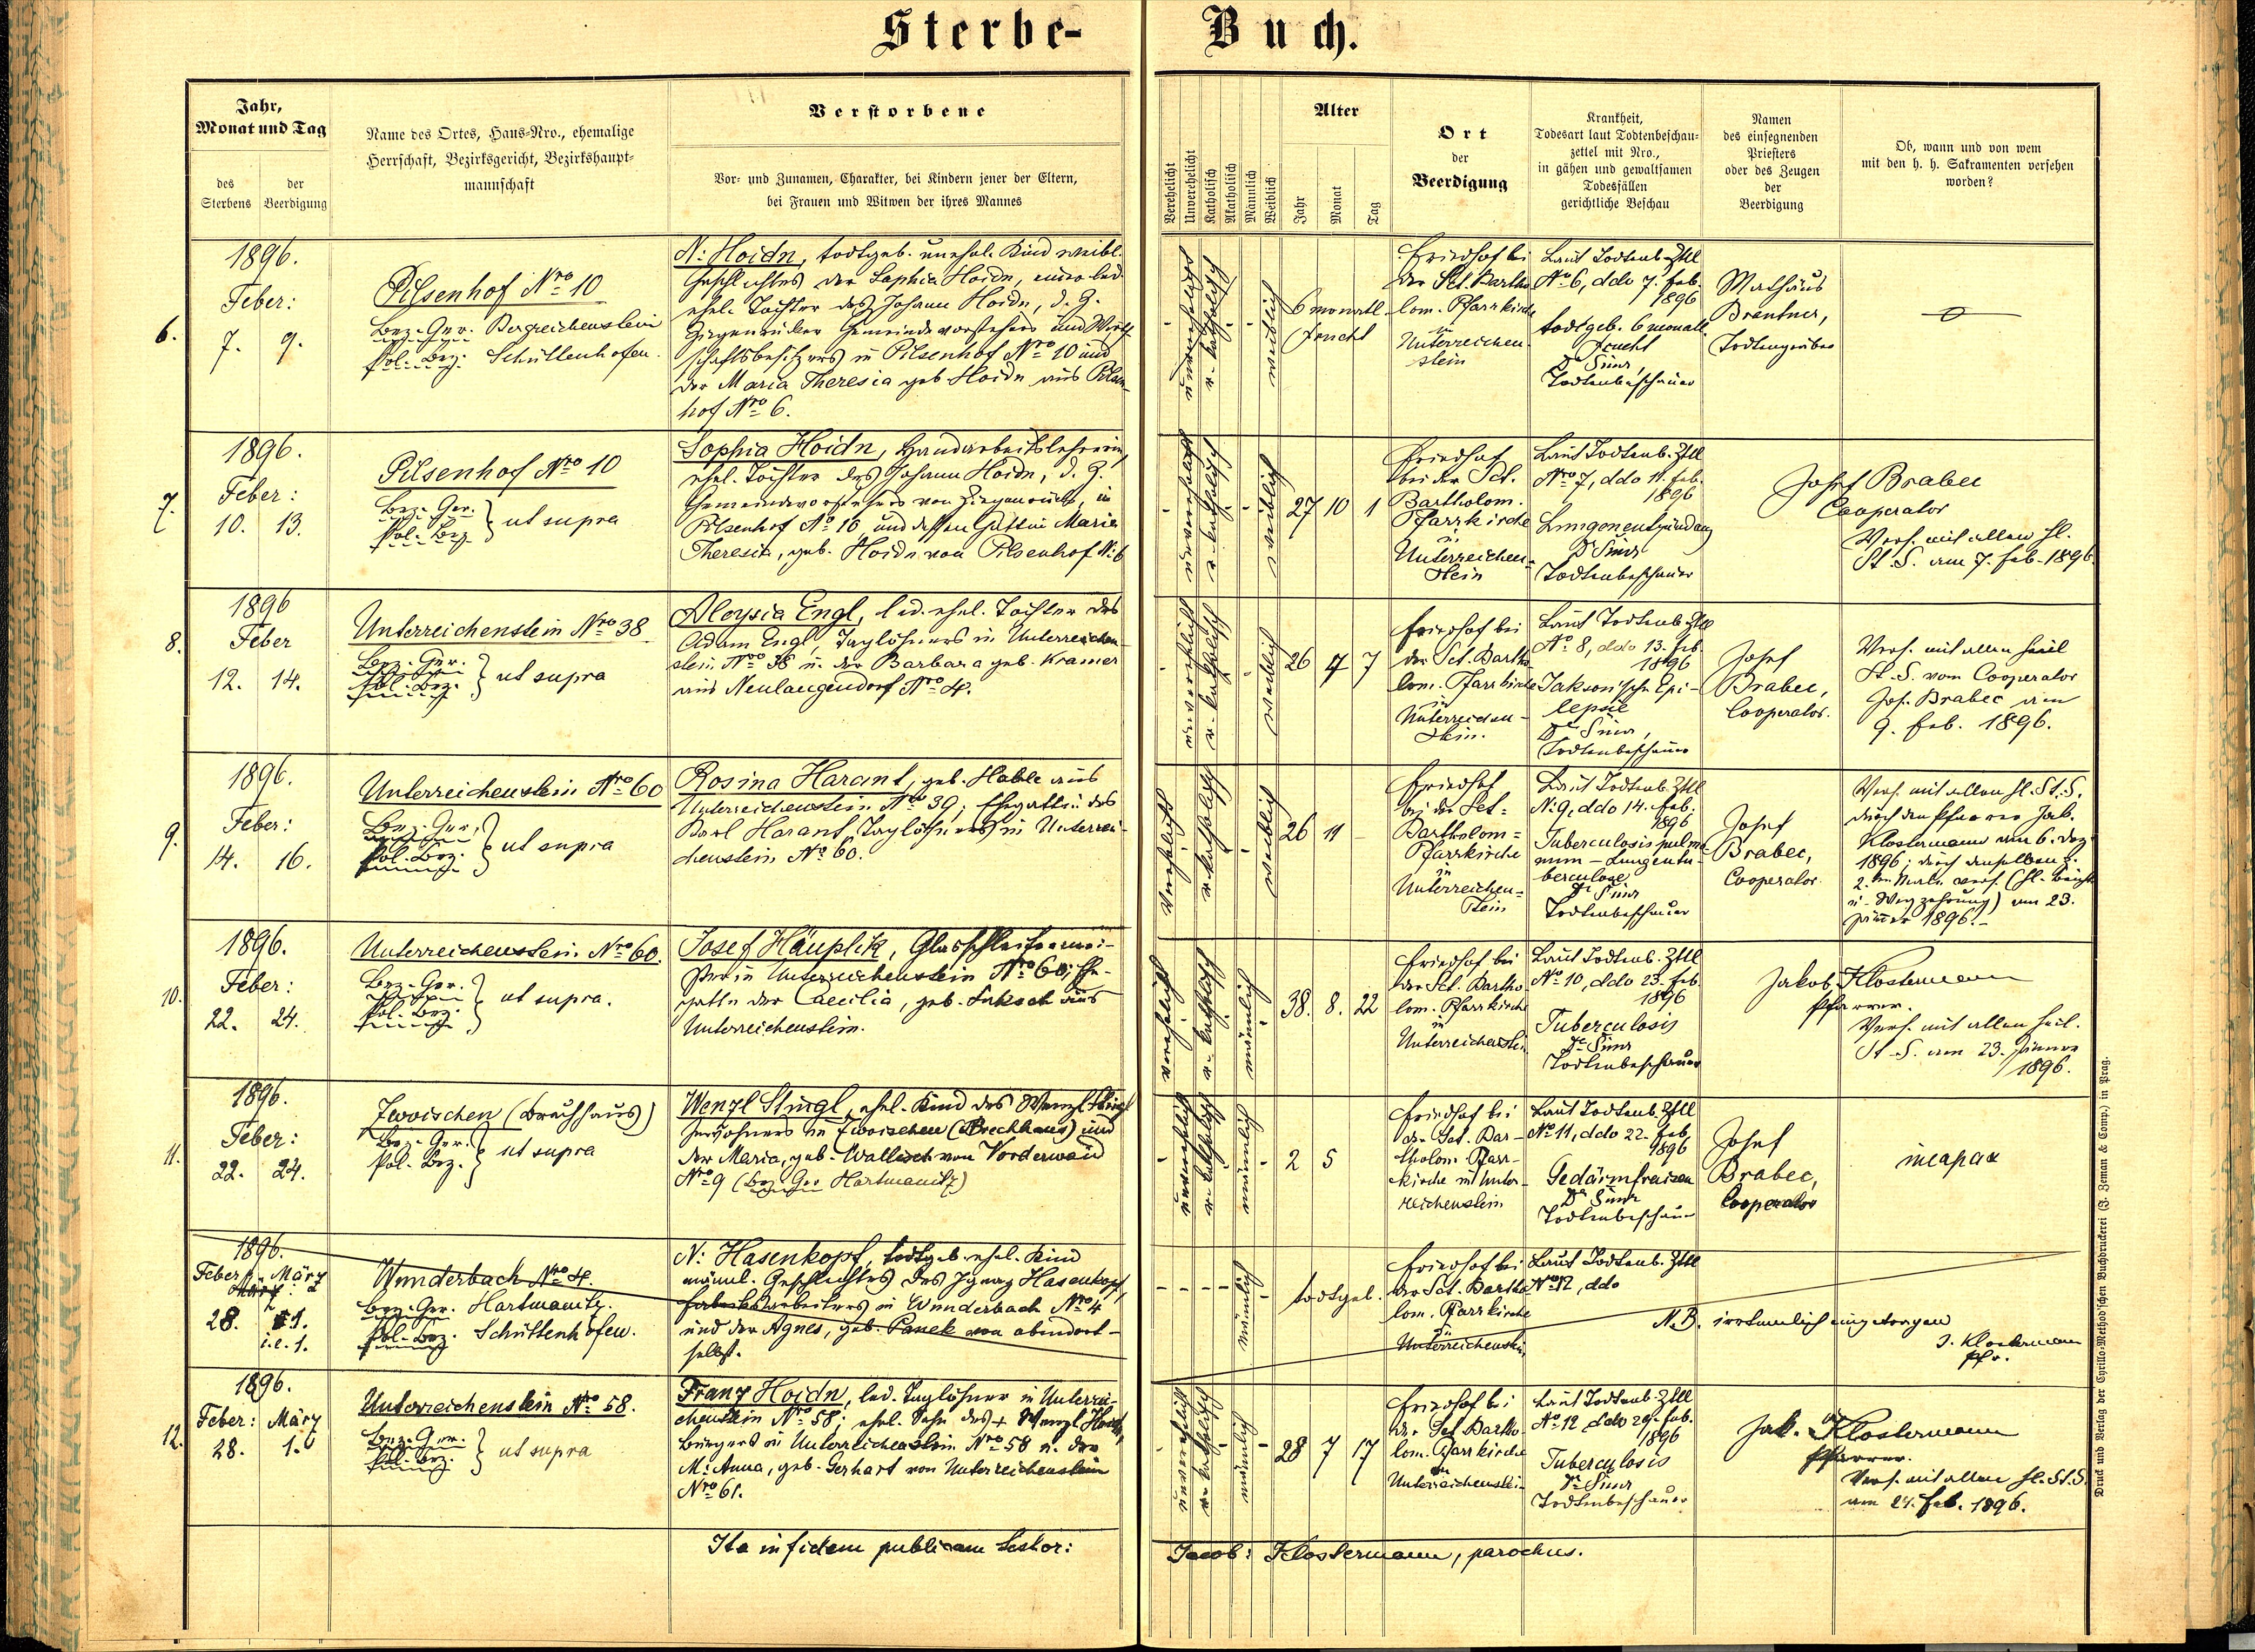 Sterbe-
Buch.
Jahr,
Monat und Tag
des
Sterbens
der
Beerdigung
Name des Ortes, Haus-Nro., ehemalige
Herrschaft, Bezirksgericht, Bezirkshaupt-
mannschaft
Verstorbene
Vor- und Zunamen, Charakter, bei Kindern jener der Eltern,
bei Frauen und Witwen der ihres Mannes
Verehelicht
Unverehelicht
Katholisch
Akatholisch
Männlich
Weiblich
Alter
Jahr
Monat
Tag
Ort
der
Beerdigung
Krankheit,
Todesart laut Todtenbeschau-
zettel mit Nro.,
in gähen und gewaltsamen
Todesfällen
gerichtliche Beschau
Namen
des einsegnenden
Priesters
oder des Zeugen
der
Beerdigung
Ob, wann und von wem
mit den h. h. Sakramenten versehen
worden?
6.
1896.
Feber:
7. 9.
Pilsenhof Nro 10
Bez. Ger. Bergreichenstein
Pol. Bez. Schüttenhofen.
N: Hoidn, todtgeb. unehel. Kind weibl.
Geschlechtes der Sophia Hoidn, einer led.
ehel. Tochter des Johann Hoidn, d. Z.
Ziegenrücker Gemeindevorstehers und Wirth-
schaftsbesitzers in Pilsenhof Nro 10 und
der Maria Theresia geb Hoidn aus Pilsen-
hof Nro 6.
unehelich
r. katholisch
weiblich
6 monatl.
Frucht
Friedhof bei
der Sct. Bartho
lom. Pfarrkirche
in
Unterreichen-
stein
Laut Todtenb. Zttl
No 6, ddo 7. Feb.
1896
todtgeb. 6 monatl.
Frucht
Todtenbeschauer
Mathäus
Brantner,
Todtengräber
7.
1896.
Feber:
10. 13.
Pilsenhof Nro 10
Bez. Ger.
Pol. Bez. } ut supra
Sophia Hoidn, Handarbeitslehrerin,
ehel. Tochter des Johann Hoidn, d. Z.
Gemeindevorstehers von Ziegenruck, in
Pilsenhof No 10 und dessen Gattin Maria
Theresia, geb. Hoidn von Pilsenhof N: 6
unverehelicht
r. katholisch
weiblich
27 10 1
Friedhof
bei der Sct.
Bartholom.
Pfarrkirche
in
Unterreichen-
stein
Laut Todtenb. Zttl
Nro 7, ddo 11. Feb.
1896
Lungenentzündung
Todtenbeschauer
Josef Brabec
Cooperator
Vers. mit allen hl.
St. S. am 7. Feb. 1896.
8.
1896
Feber
12. 14.
Unterreichenstein Nro 38
Bez. Ger.
Pol. Bez. } ut supra
Aloysia Engl, led. ehel. Tochter des
Adam Engl, Taglöhners in Unterreichen-
stein Nro 38 u. der Barbara geb. Kramer
aus Neulangendorf Nro 4.
unverehelicht
r. katholisch
weiblich
26 4 7
Friedhof bei
der Sct. Bartho
lom. Pfarrkirche
in
Unterreichen-
stein.
Laut Todtenb. Zttl
No 8, ddo 13. Feb.
1896
Jakson'sche Epi-
lepsie
Todtenbeschauer
Josef
Brabec,
Cooperator.
Vers. mit allen heil
St. S. vom Cooperator
Jos. Brabec am
9. Feb. 1896.
9.
1896.
Feber:
14. 16.
Unterreichenstein Nro 60
Bez. Ger.
Pol. Bez. } ut supra
Rosina Harant, geb. Hable aus
Unterreichenstein Nro 39, Ehegattin des
Karl Harant, Taglöhners in Unterrei-
chenstein No 60.
verehelicht
r. katholisch
weiblich
26 11 -
Friedhof
bei der Sct.
Bartholom-
Pfarrkirche
in
Unterreichen-
stein
Laut Todtenb. Zttl
N: 9, ddo 14. Feb.
1896
Tuberculosis pulmo
num - Lungentu-
berculose
Todtenbeschauer
Josef
Brabec,
Cooperator
Vers. mit allen hl. St. S.
durch den Pfarrer Jak.
Klostermann am 6. Dez
1896; durch denselben z.
2. ten Male vers. (hl. Beicht
u. Wegzehrung) am 23.
Jänner 1896.-
10.
1896.
Feber:
22. 24.
Unterreichenstein Nro 60.
Bez. Ger.
Pol. Bez. } ut supra.
Josef Häuplik, Glasschleifermei-
ster in Unterreichenstein Nro 60; Ehe-
gatte der Caecilia, geb. Taksch aus
Unterreichenstein.
verehelicht
r. katholisch
männlich
38. 8. 22
Friedhof bei
der Sct. Bartho
lom. Pfarrkirche
in
Unterreichenstein
Laut Todtenb. Zttl
No 10, ddo 23. Feb.
1896
Tuberculosis
Todtenbeschauer
Jakob Klostermann
Pfarrer.
Vers. mit allen heil.
St. S. am 23. Jänner
1896.
11.
1896.
Feber:
22. 24.
Zwoischen (Brechhaus)
Bez. Ger.
Pol. Bez. } ut supra
Wenzl Stingl, ehel. Kind des Wenzl Stingl
Inwohners in Zwoischen (Brechhaus) und
der Maria, geb. Wallisch von Vorderwaid
Nro 9 (Bez. Ger Hartmanitz)
unverehelicht
r. katholisch
männlich
2 5
Friedhof bei
der Sct. Bar-
tholom. Pfarr-
kirche in Unter-
reichenstein
Laut Todtenb. Zttl
No 11, ddo 22. Feb.
1896
Gedärmfraisen
Todtenbeschauer
Josef
Brabec,
Cooperator
incapax
1896.
Feber März
28. 1.
i. e. 1.
Wunderbach Nro 4.
Bez. Ger. Hartmanitz.
Pol. Bez. Schüttenhofen.
N: Hasenkopf, todtgeb. ehel. Kind
männl. Geschlechtes des Ignaz Hasenkopf,
Fabriksarbeiters in Wunderbach Nro 4
und der Agnes, geb. Panek von abendort-
selbst.
männlich
todtgeb.
Friedhof bei
der Sct. Bartho
lom. Pfarrkirche
in
Unterreichenstein
Laut Todtenb. Zttl
No 12, ddo
N. B. irrthümlich eingetragen
J. Klostermann
Pfr.
12.
1896.
Feber: März
28. 1.
Unterreichenstein Nro 58.
Bez. Ger.
Pol. Bez. } ut supra
Franz Hoidn, led. Taglöhner in Unterrei-
chenstein Nro 58; ehel. Sohn des + Wenzl Hoidn,
Bürgers in Unterreichenstein Nro 58 u. der
M: Anna, geb. Gerhart von Unterreichenstein
Nro 61.
unverehelicht
r. katholisch
männlich
28 7 17
Friedhof bei
der Sct Bartho-
lom. Pfarrkirche
in
Unterreichenstein
Laut Todtenb. Zttl
No 12 ddo 29. Feb.
1896
Tuberculosis
Todtenbeschauer
Jak. Klostermann
Pfarrer.
Vers. mit allen hl. St. S.
am 21. Feb. 1896.
Ita in fidem publicam testor:
Jacob: Klostermann, parochus.
Druck und Verlag der Cyrillo-Method'schen Buchdruckerei (J. Zeman & Comp.) in Prag.